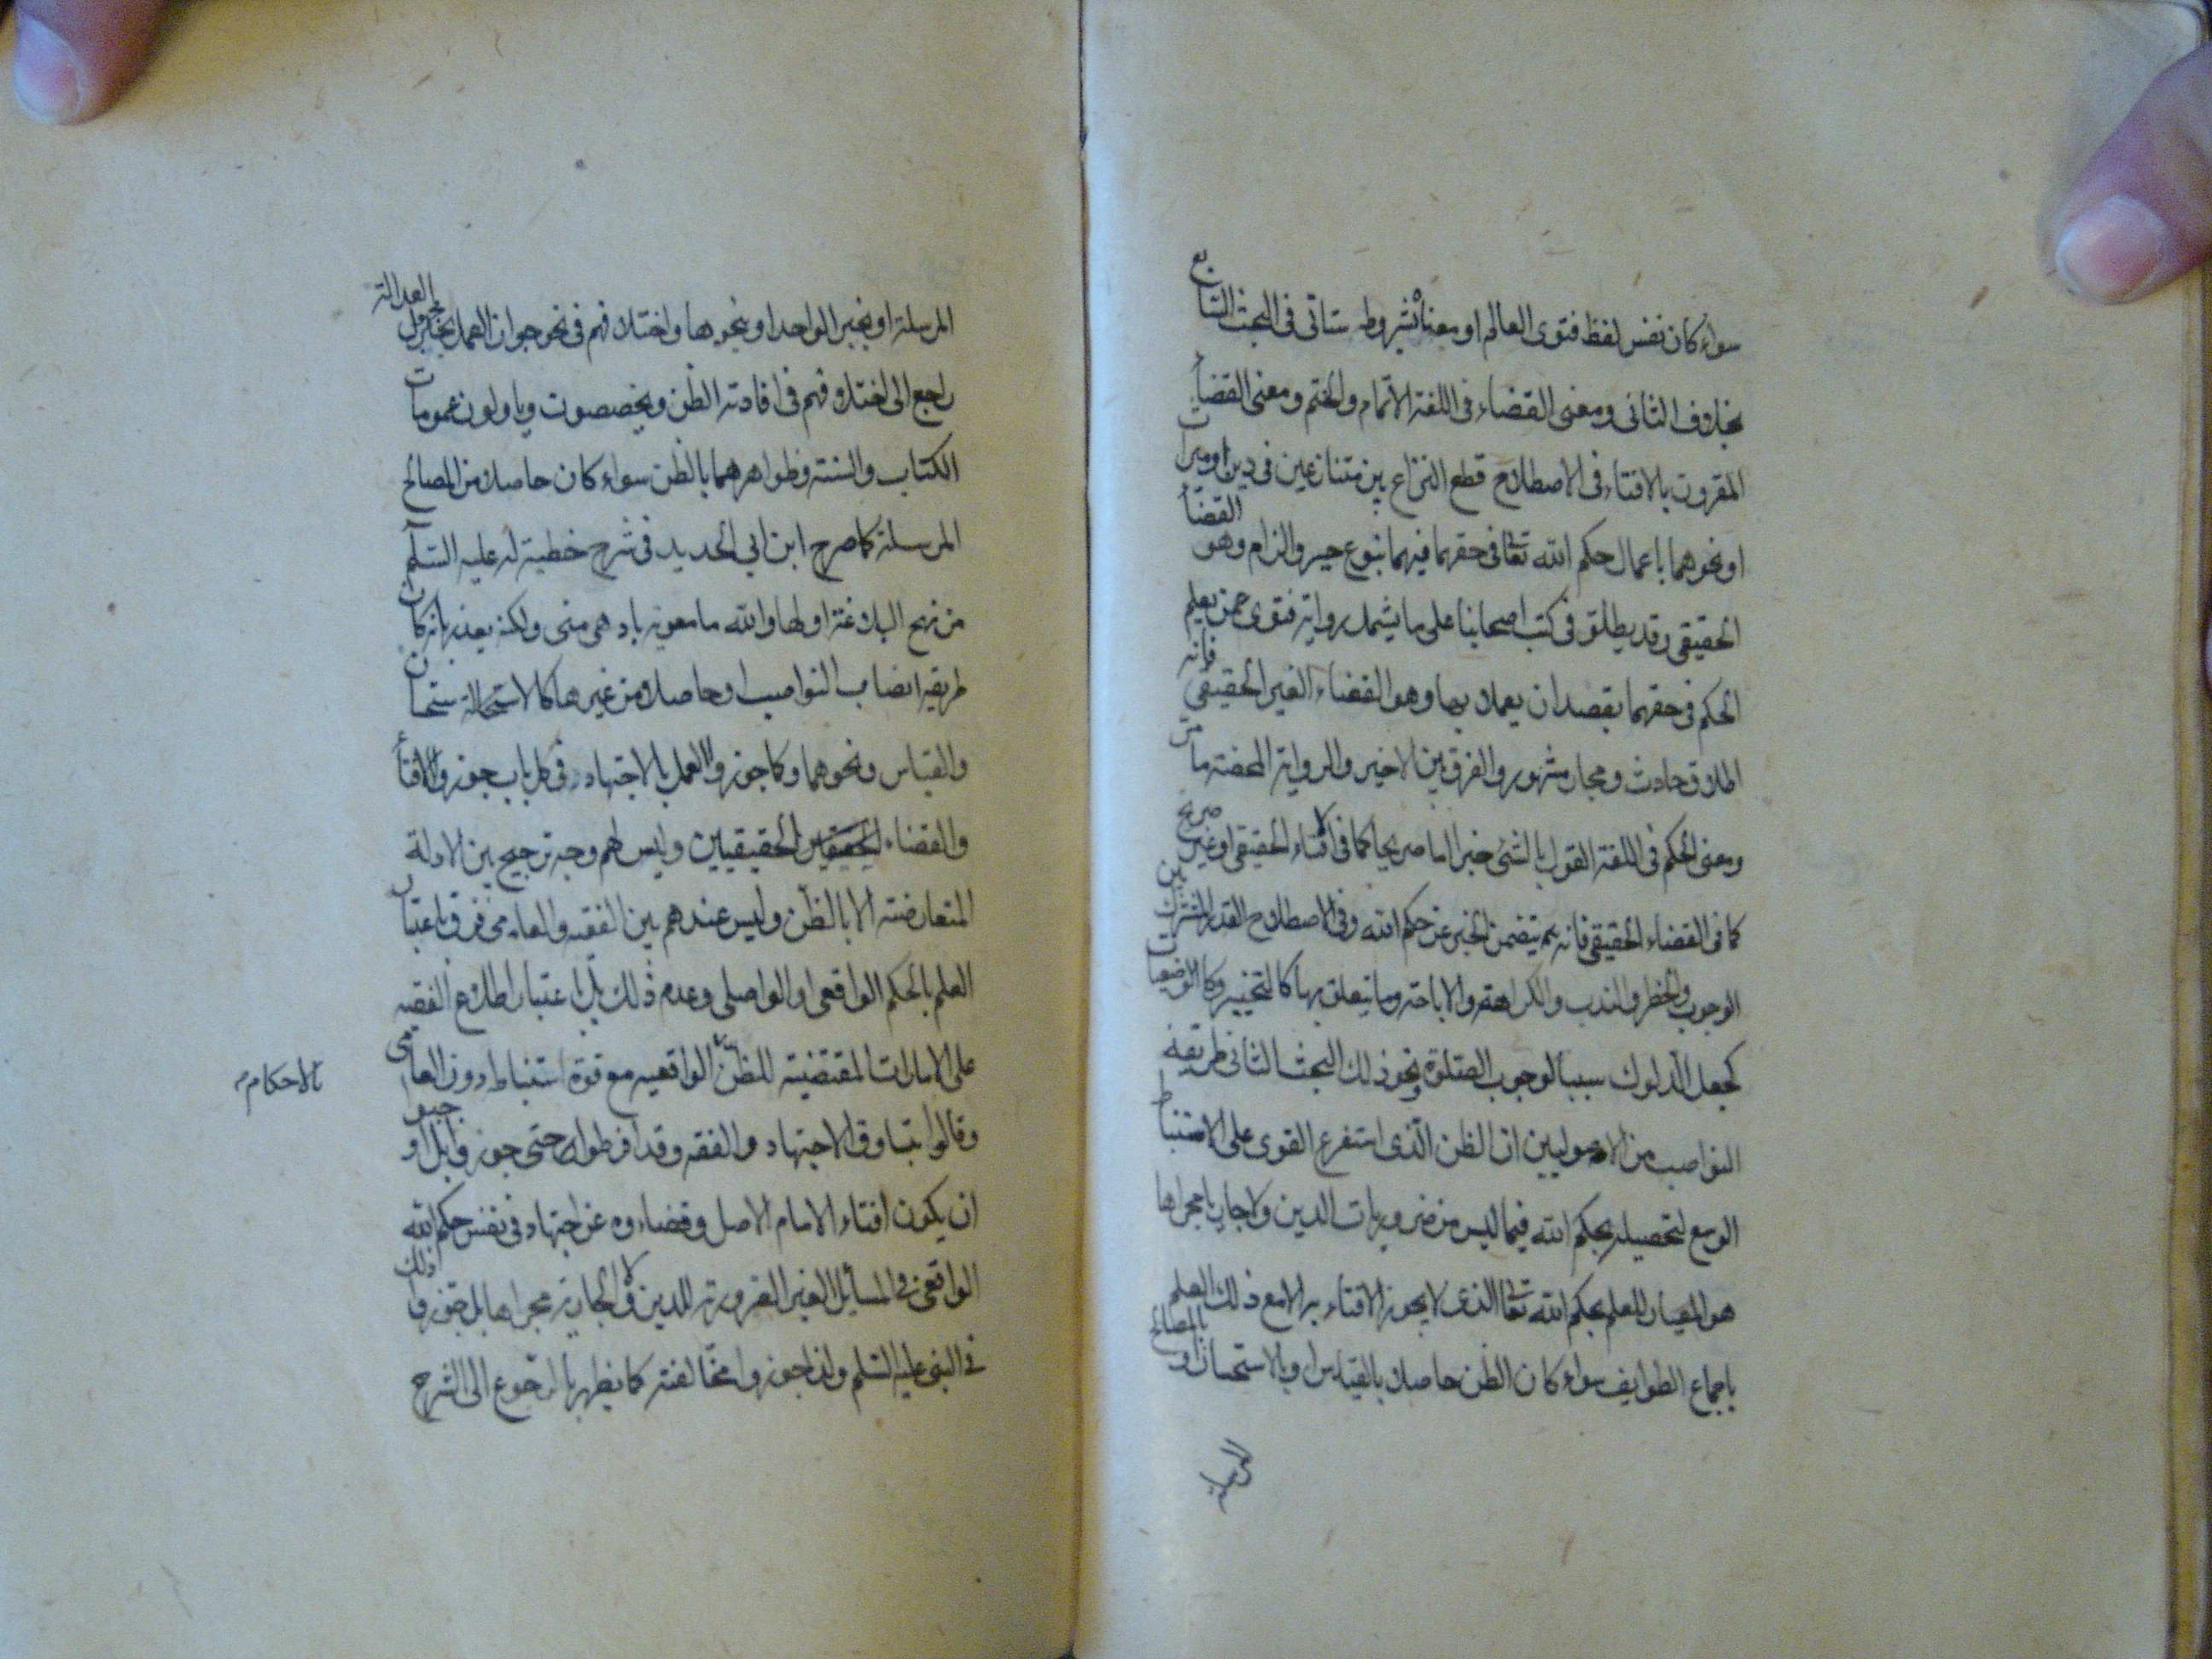 سواء كان نفس لفظ فتوى العالم او معناه بشروط ستاتى فى البحث السابع
بخلاف الثانى ومعنى القضاء فى اللغة الاتمام والختم ومعنى القضاء
المقرون بالافتاء فى الاصطلاح قطع النزاع بين متنازعين فى دين او ميراث
او نحوهما باعمال حكم الله تعالى فى حقهما فيهما بنوع جبر والزام وهو القضاء
الحقيقى وقد يطلق فى كتب اصحابنا على ما يشمل رواية فتوى عمن يعلم
الحكم فى حقهما بقصد ان يعملا بها وهو القضاء الغير الحقيقى فانه
اطلاق حادث ومجاز مشهور والفرق بين الاخير والرواية المحضة ما مر
ومعنى الحكم فى اللغة القول بالشئ خبرا اما صريحا كما فى الافتاء الحقيقى او غير صريح
كما فى القضاء الحقيقى فانه يتضمن الخبر عن حكم الله وفى الاصطلاح القدر المشترك بين
الوجوب والحظر والندب والكراهة والاباحة وما يتعلق بها كالتخيير وكالوضعيات
كجعل الدلوك سببا لوجوب الصلوة ونحو ذلك البحث الثانى طريقة
النواصب من الاصوليين ان الظن الذى استفرغ القوى على الاستنباط
الوسع لتحصيله بحكم الله فيما ليس من ضروريات الدين ولا جاريا مجراها
هو المعيار للعلم بحكم الله تعالى الذى لا يجوز الافتاء به الا مع ذلك العلم
باجماع الطوايف سواء كان الظن حاصلا بالقياس او بالاستحسان او بالمصالح
المرسلة او بخبر الواحد او بنحوها واختلافهم فى نحو جواز العمل بخبر مجهول العدالة
راجع الى اختلافهم فى افادته الظن ويخصصون وياولون عمومات
الكتاب والسنة وظواهرهما بالظن سواء كان حاصلا من المصالح
المرسلة كما صرح ابن ابى الحديد فى شرح خطبة له عليه السلام
من نهج البلاغة اولها والله ما معوية بادهى منى ولكنه يغدر بانه كان
طريقه انصاب النواصب او حاصلا من غيرها كالاستحسان
والقياس ونحوهما وكما جوزوا العمل بالاجتهاد فى كل باب جوزوا الافتاء
والقضاء الحقيقيين وليس لهم وجه ترجيح بين الادلة
المتعارضة الا بالظن وليس عندهم بين الفقيه والعامى فرق باعتبار
العلم بالحكم الواقعى او الواصلى وعدم ذلك بل باعتبار اطلاع الفقيه
على الامارات المقتضية للظن بالاحكام الواقعية مع قوة استنباط دون العامى
وقالوا بتساوق الاجتهاد والفقه وقد افرطوا حتى جوزوا بل اوجبوا
ان يكون افتاء الامام الاصل وقضاءه عن اجتهاد فى نفس حكم الله
الواقعى فى المسائل الغير الضرورية للدين ولا الجارية مجراها بل جوزوا ذلك
فى النبى عليه السلم ولذا جوزوا مخالفته كما يظهر بالرجوع الى الشرح